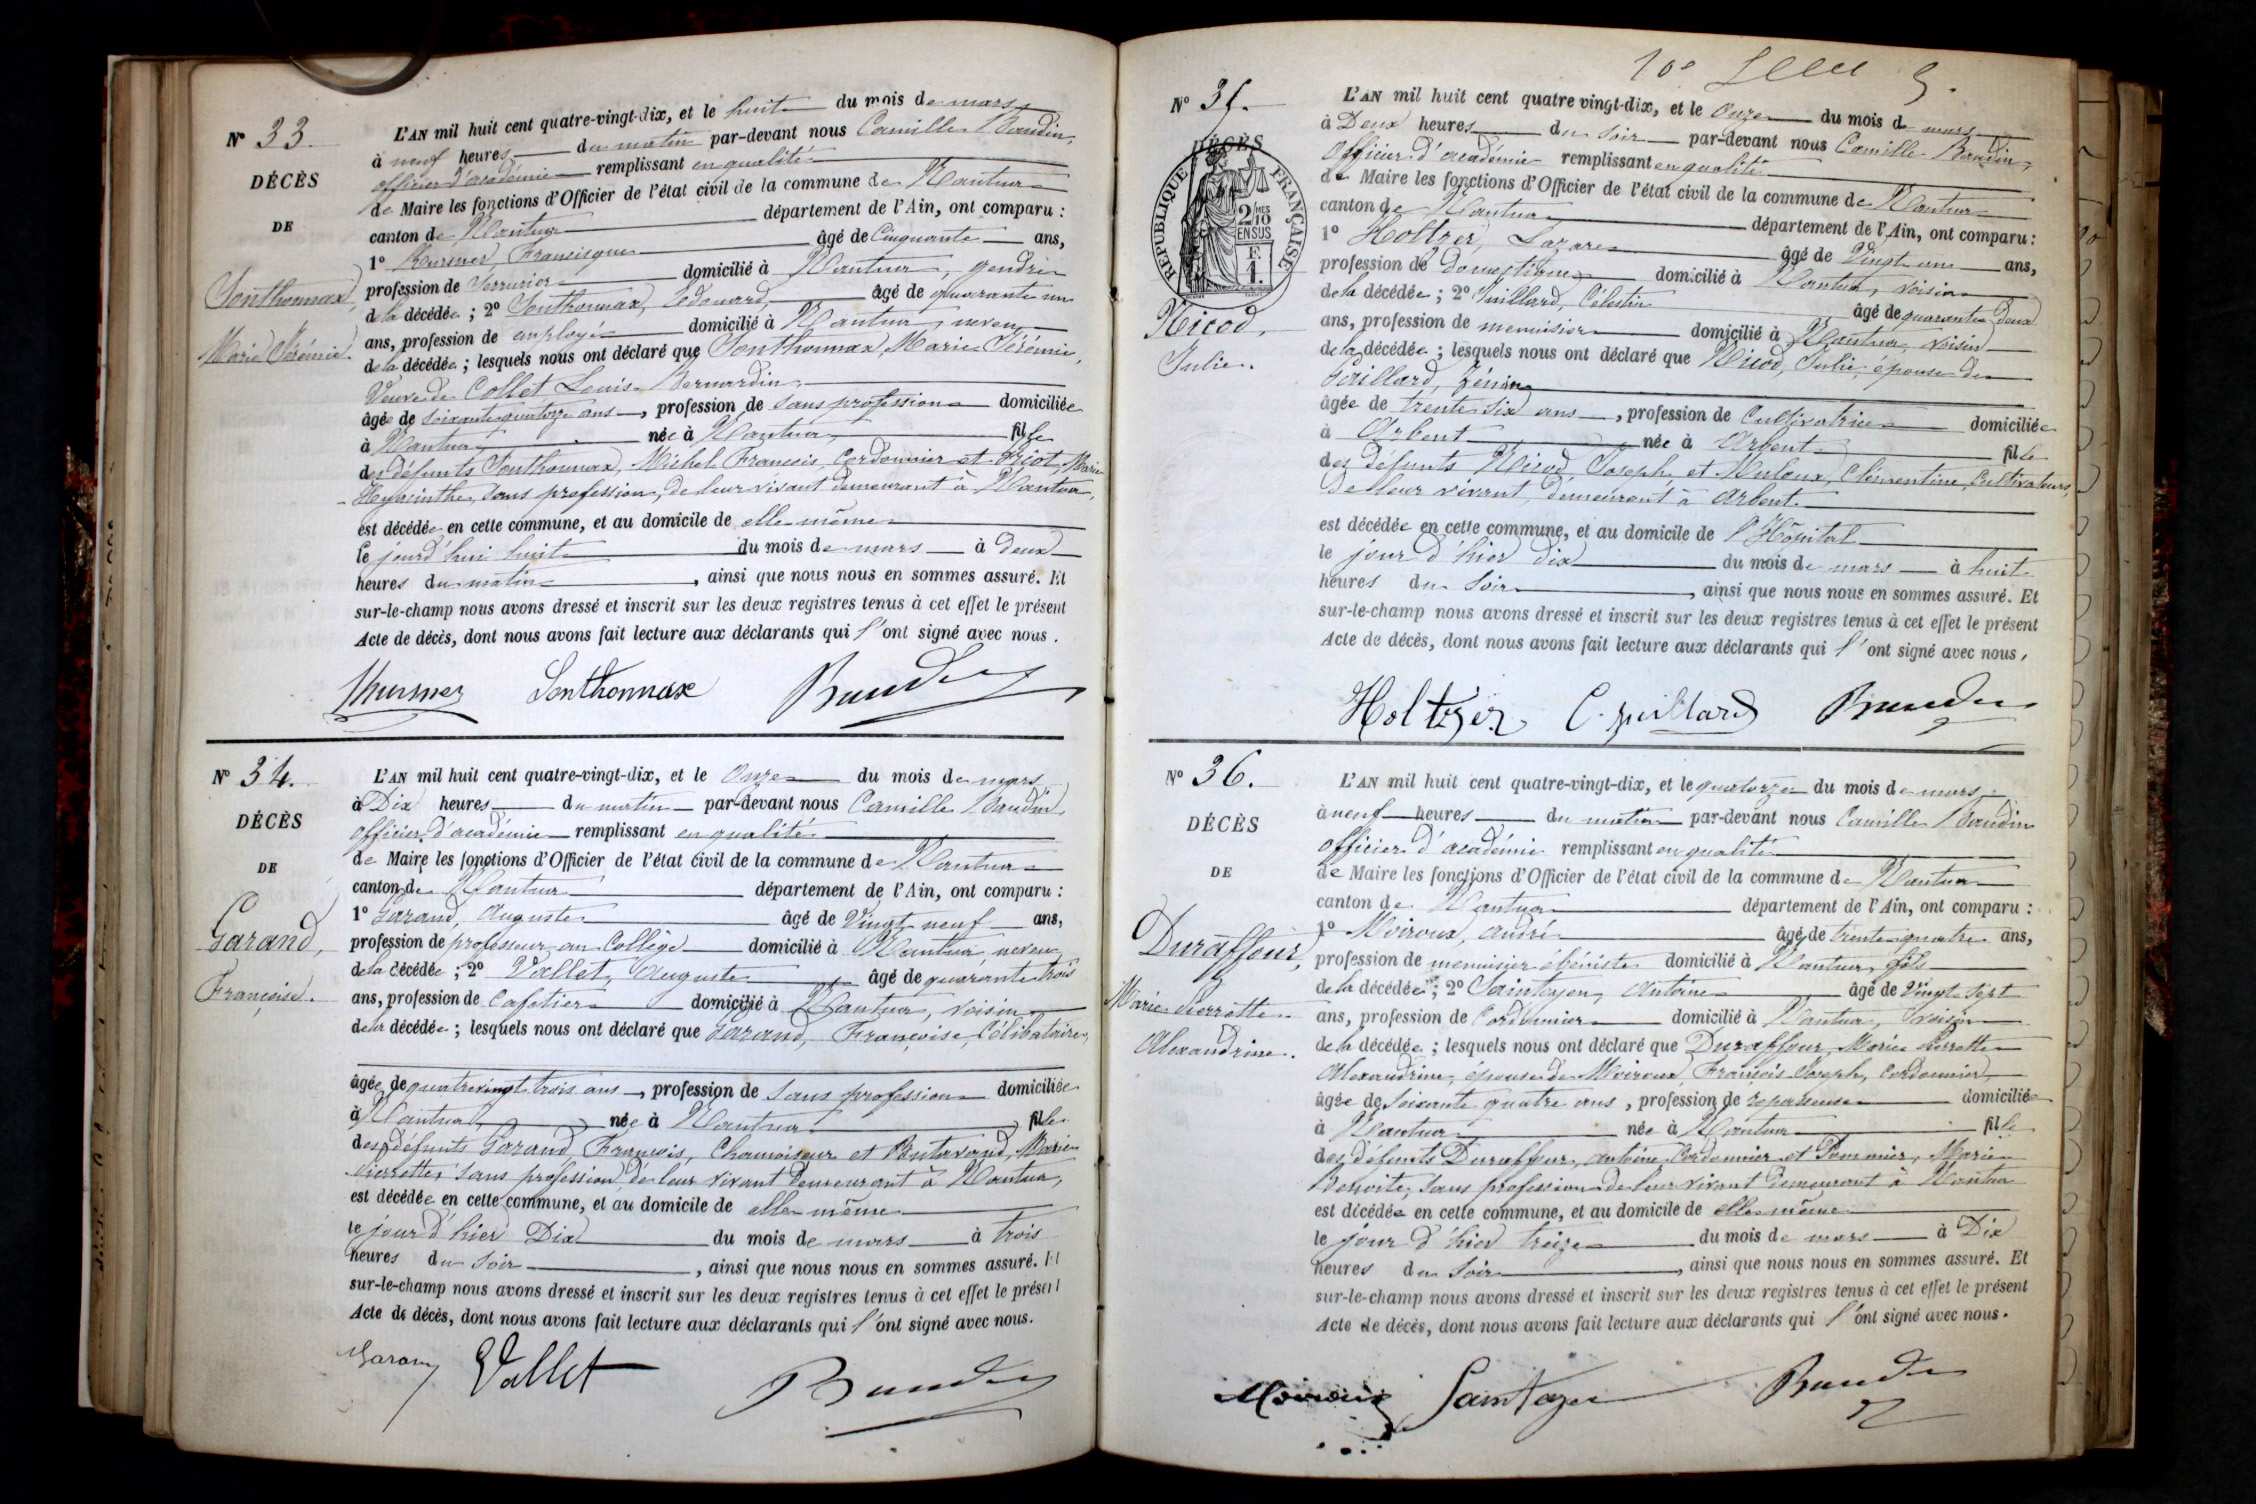 N° 33.
DÉCÈS
DE
Sonthonnax,
Marie Jérémie.
L'AN mil huit cent quatre-vingt-dix, et le huit du mois de mars
à neuf heures du matin par-devant nous Camille Baudin,
officier d'académie remplissant en qualité
de Maire les fonctions d'Officier de l'état civil de la commune de Nantua
canton de Nantua département de l'Ain, ont comparu :
1° Francisque âgé de Cinquante ans,
profession de Serrurier domicilié à Nantua, gendre
de la décédée ; 2° Sonthonnax, Edouard, âgé de quarante un
ans, profession de employé domicilié à Nantua, neveu
de la décédée ; lesquels nous ont déclaré que Sonthonnax, Marie Jérémie,
Veuve de Collet Louis Bernardin,
âgée de soixante quatorze ans, profession de sans profession domiciliée
à Nantua née à Nantua, fille
des défunts Sonthonnax, Michel François, Cordonnier et Marie
Hyacinthe, sans profession, de leur vivant demeurant à Nantua,
est décédée en cette commune, et au domicile de elle même
le jourd'hui huit du mois de mars à deux
heures du matin, ainsi que nous nous en sommes assuré. Et
sur-le-champ nous avons dressé et inscrit sur les deux registres tenus à cet effet le présent
Acte de décès, dont nous avons fait lecture aux déclarants qui l'ont signé avec nous.
Sonthonnax Baudin
N° 34.
DÉCÈS
DE
Garand,
Françoise.
L'AN mil huit cent quatre-vingt-dix, et le Onze du mois de mars
à Dix heures du matin par-devant nous Camille Baudin,
officier d'académie remplissant en qualité
de Maire les fonctions d'Officier de l'état civil de la commune de Nantua
canton de Nantua département de l'Ain, ont comparu :
1° Garand, Auguste âgé de Vingt neuf ans,
profession de professeur au Collège domicilié à Nantua, neveu
de la décédée ; 2° Vallet, Auguste âgé de quarante trois
ans, profession de Cafetier domicilié à Nantua, voisin
de la décédée ; lesquels nous ont déclaré que Garand, Françoise, Célibataire,
âgée de quatrevingt trois ans, profession de sans profession domiciliée
à Nantua, née à Nantua, fille
des défunts Garand, François, Chamoiseur et Marie
Pierrette, sans profession de leur vivant demeurant à Nantua,
est décédée en cette commune, et au domicile de elle même
le jour d'hier Dix du mois de mars à trois
heures du soir, ainsi que nous nous en sommes assuré. Et
sur-le-champ nous avons dressé et inscrit sur les deux registres tenus à cet effet le présent
Acte de décès, dont nous avons fait lecture aux déclarants qui l'ont signé avec nous.
Garand Vallet Baudin
N° 35.
DÉCÈS
RÉPUBLIQUE FRANÇAISE
2/10 MES
EN SUS
F.
1.
Nicod,
Julie.
L'AN mil huit cent quatre vingt-dix, et le Onze du mois de mars
à Deux heures du soir par-devant nous Camille Baudin,
Officier d'académie remplissant en qualité
de Maire les fonctions d'Officier de l'état civil de la commune de Nantua
canton de Nantua département de l'Ain, ont comparu :
1° Holtzer, Lazare âgé de Vingt un ans,
profession de Domestique domicilié à Nantua, voisin
de la décédée ; 2° Juillard, Célestin âgé de quarante deux
ans, profession de menuisier domicilié à Nantua, voisin
de la décédée ; lesquels nous ont déclaré que Nicod, Julie, épouse de
Gaillard, Zénon
âgée de trente six ans, profession de Cultivatrice domiciliée
à Arbent née à Arbent fille
des défunts Nicod, Joseph et Clémentine, Cultivateurs,
de leur vivant, demeurant à Arbent.
est décédée en cette commune, et au domicile de l'Hôpital
le jour d'hier dix du mois de mars à huit
heures du soir, ainsi que nous nous en sommes assuré. Et
sur-le-champ nous avons dressé et inscrit sur les deux registres tenus à cet effet le présent
Acte de décès, dont nous avons fait lecture aux déclarants qui l'ont signé avec nous,
Holtzer C. Juillard Baudin
N° 36.
DÉCÈS
DE
Duraffour,
Marie Pierrette
Alexandrine.
L'AN mil huit cent quatre-vingt-dix, et le quatorze du mois de mars
à neuf heures du matin par-devant nous Camille Baudin
officier d'académie remplissant en qualité
de Maire les fonctions d'Officier de l'état civil de la commune de Nantua
canton de Nantua département de l'Ain, ont comparu :
1° Moiroux, André âgé de trente quatre ans,
profession de menuisier ébéniste domicilié à Nantua, fils
de la décédée ; 2° Saintoyen, Antoine âgé de Vingt sept
ans, profession de Cordonnier domicilié à Nantua, voisin
de la décédée ; lesquels nous ont déclaré que Duraffour, Marie Pierrette
Alexandrine, épouse de Moiroux, François Joseph, Cordonnier,
âgée de Soixante quatre ans, profession de repasseuse domiciliée
à Nantua née à Nantua fille
des défunts Duraffour, Antoine, Cordonnier et Pommier, Marie
Benoite, sans profession de leur vivant demeurant à Nantua
est décédée en cette commune, et au domicile de elle même
le jour d'hier treize du mois de mars à Dix
heures du soir, ainsi que nous nous en sommes assuré. Et
sur-le-champ nous avons dressé et inscrit sur les deux registres tenus à cet effet le présent
Acte de décès, dont nous avons fait lecture aux déclarants qui l'ont signé avec nous.
Moiroux Baudin